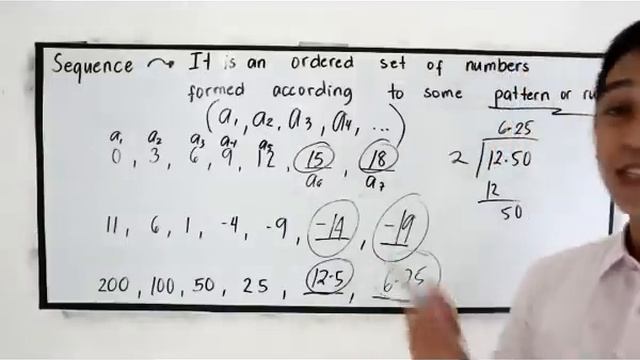 Sequence ⤳ It is an ordered set of numbers
formed according to some pattern or
(a1, a2, a3, a4, ...)
a1 a2 a3 a4 a5
0, 3, 6, 9, 12, 15, 18
a6 a7
11, 6, 1, -4, -9, -14, -19
200, 100, 50, 25, 12.5, 6.25
6.25
2 12.50
12
50